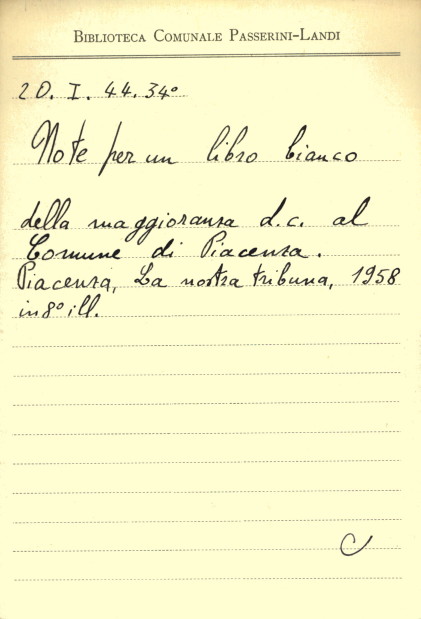 BIBLIOTECA COMUNALE PASSERINI-LANDI
20. I. 44. 34º
Note per un libro bianco
della maggioranza d.c. al
Comune di Piacenza.
Piacenza, La nostra tribuna, 1958
in 8º ill.
C